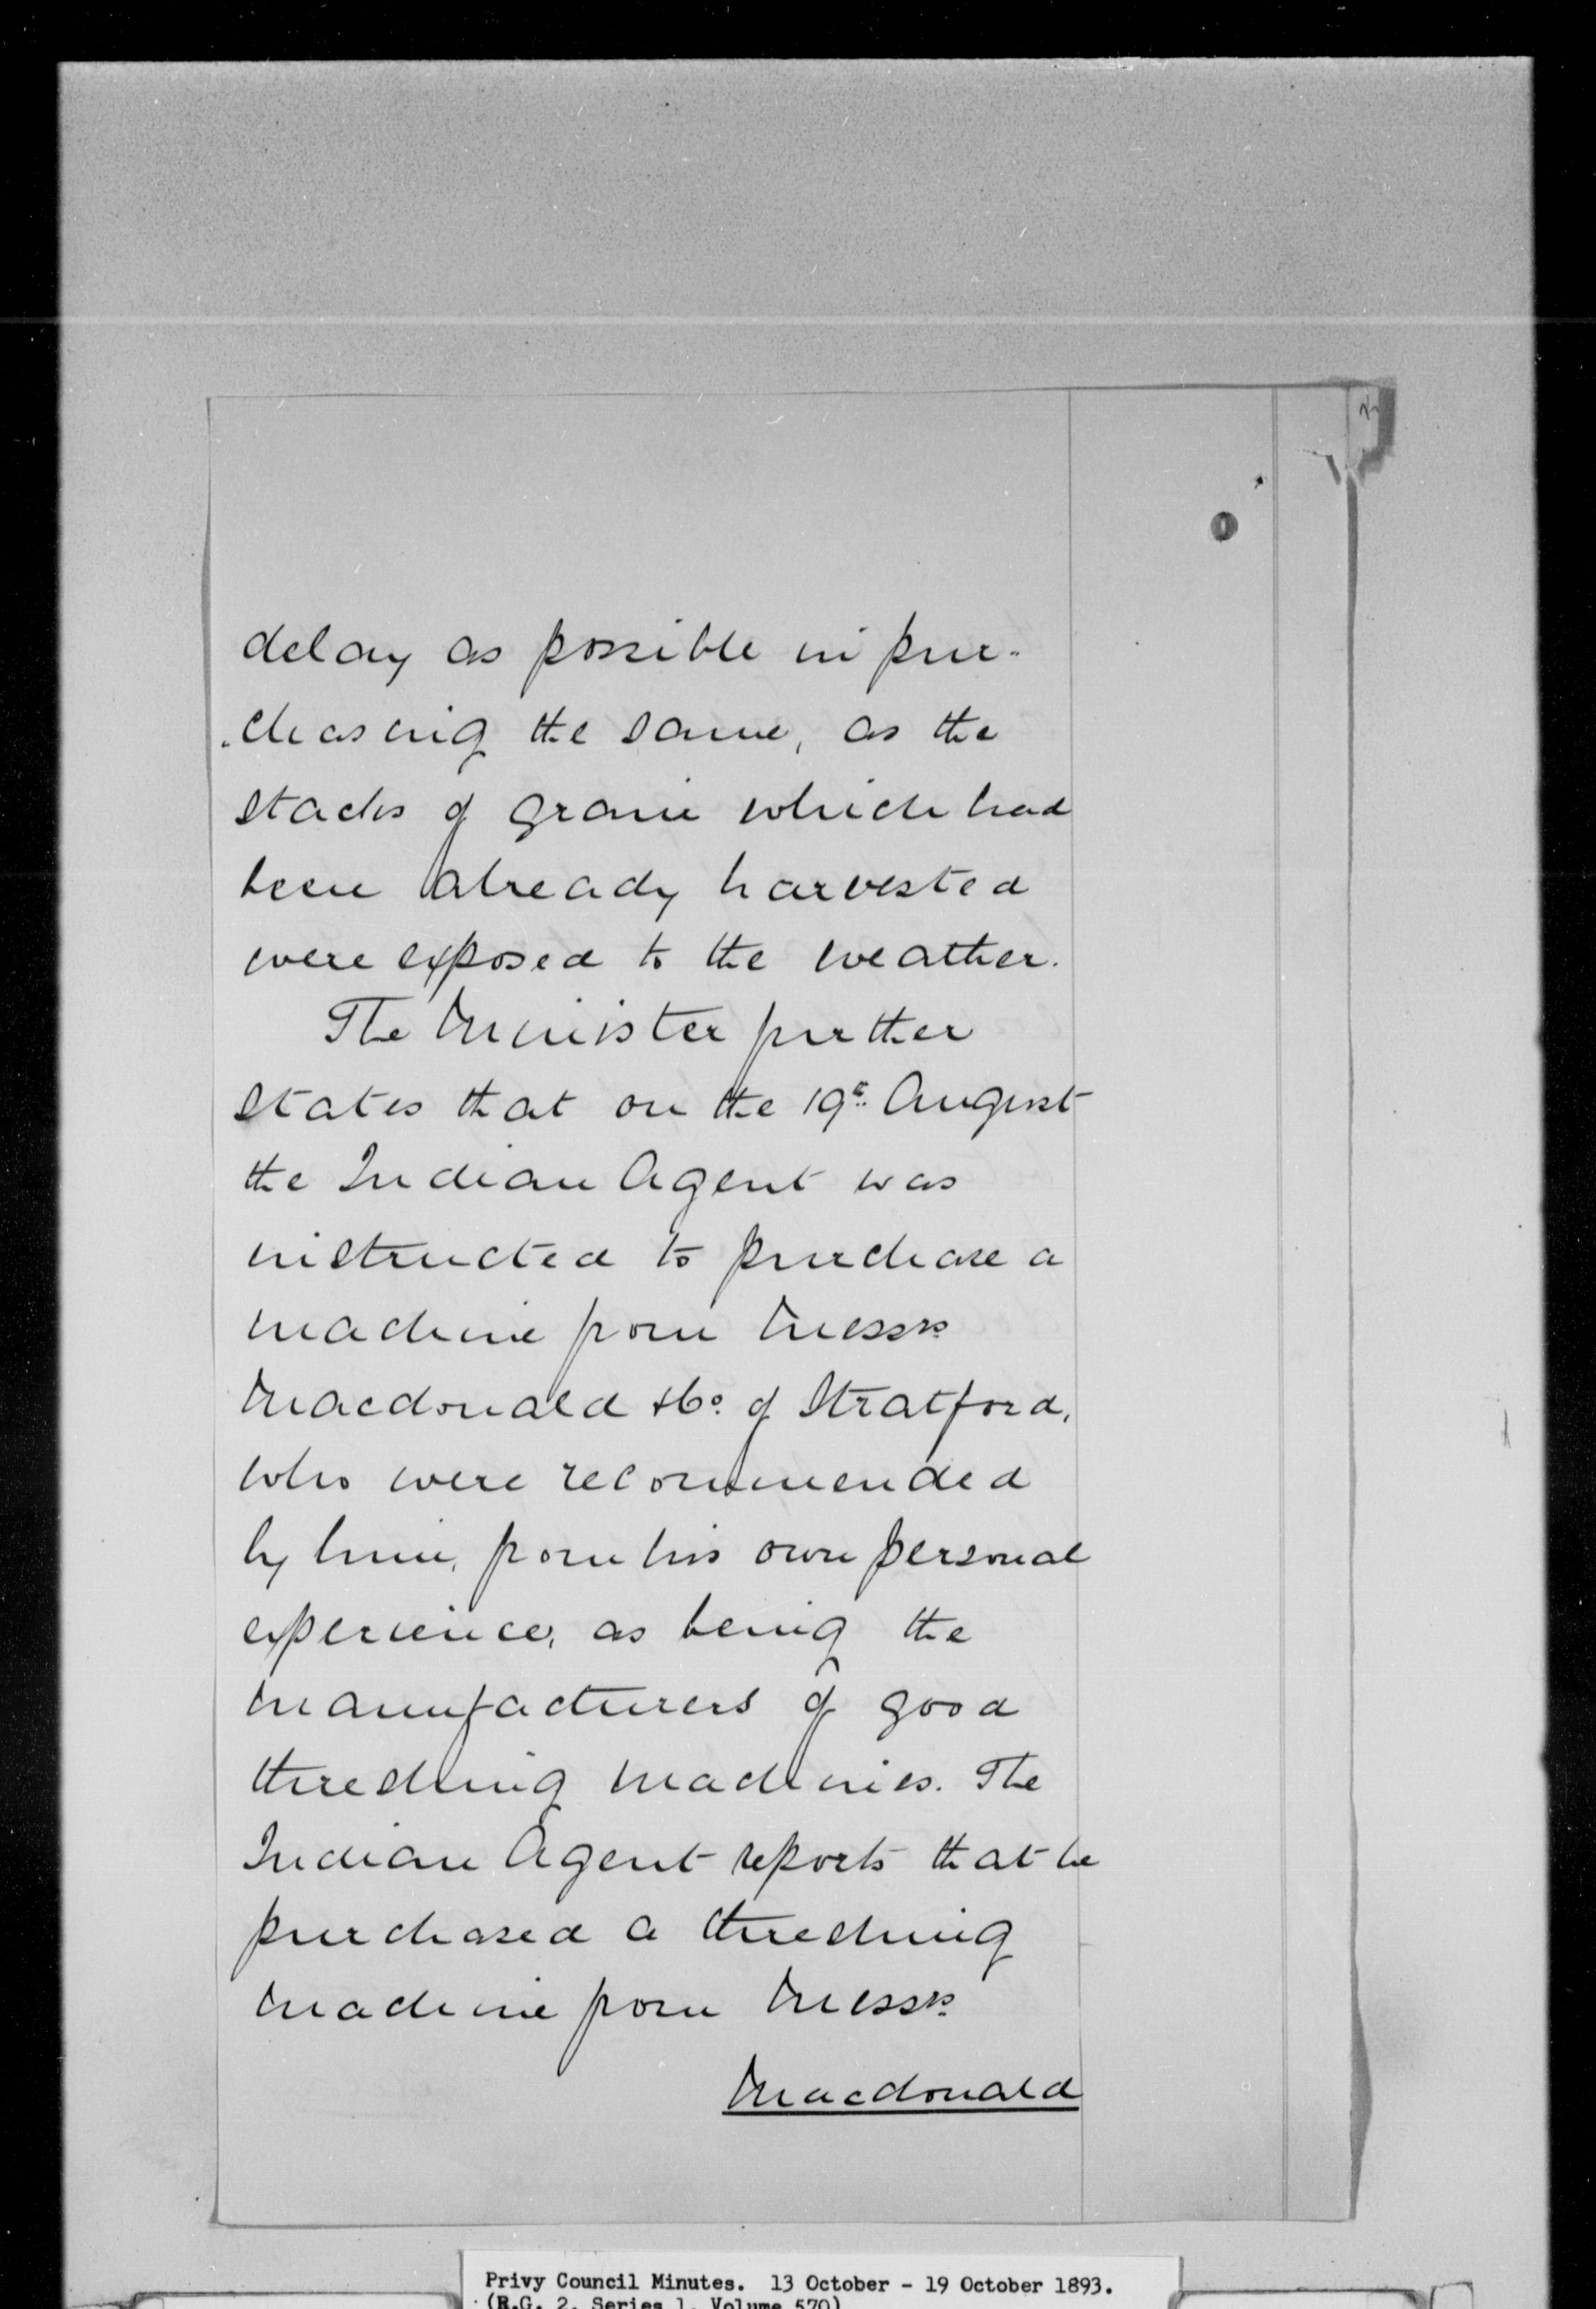 delay as possible in pur-
-chasing the same, as the
stacks of grain which had
been already harvested
were exposed to the weather.
The Minister further
states that on the 19th August
the Indian Agent was
instructed to purchase a
machine from Messrs
Macdonald & Co. of Stratford,
who were recommended
by him, from his own personal
experience, as being the
manufacturers of good
threshing machines. The
Indian Agent reports that he
purchased a threshing
machine from Messrs
Macdonald
Privy Council Minutes. 13 October - 19 October 1893.
(R.G. 2, Series 1, Volume 570)